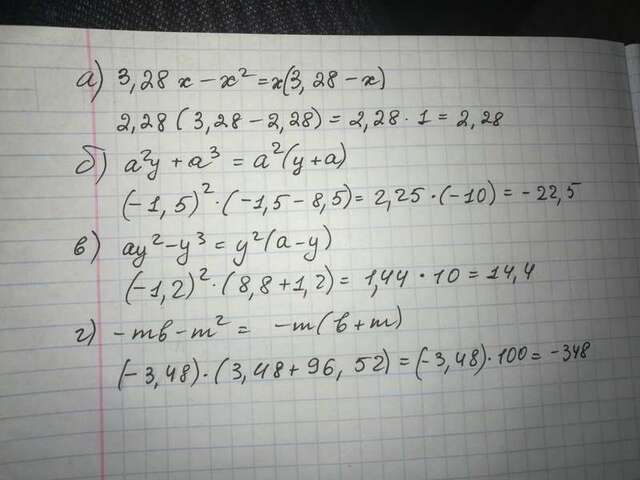 а) 3,28 x - x² = x(3,28 - x)
2,28 ( 3,28 - 2,28) = 2,28 · 1 = 2,28
б) a²y + a³ = a²(y+a)
(-1,5)² · (-1,5 - 8,5) = 2,25 · (-10) = -22,5
в) ay² - y³ = y²(a-y)
(-1,2)² · (8,8 + 1,2) = 1,44 · 10 = 14,4
г) -mb - m² = -m(b+m)
(-3,48) · (3,48 + 96,52) = (-3,48) · 100 = -348